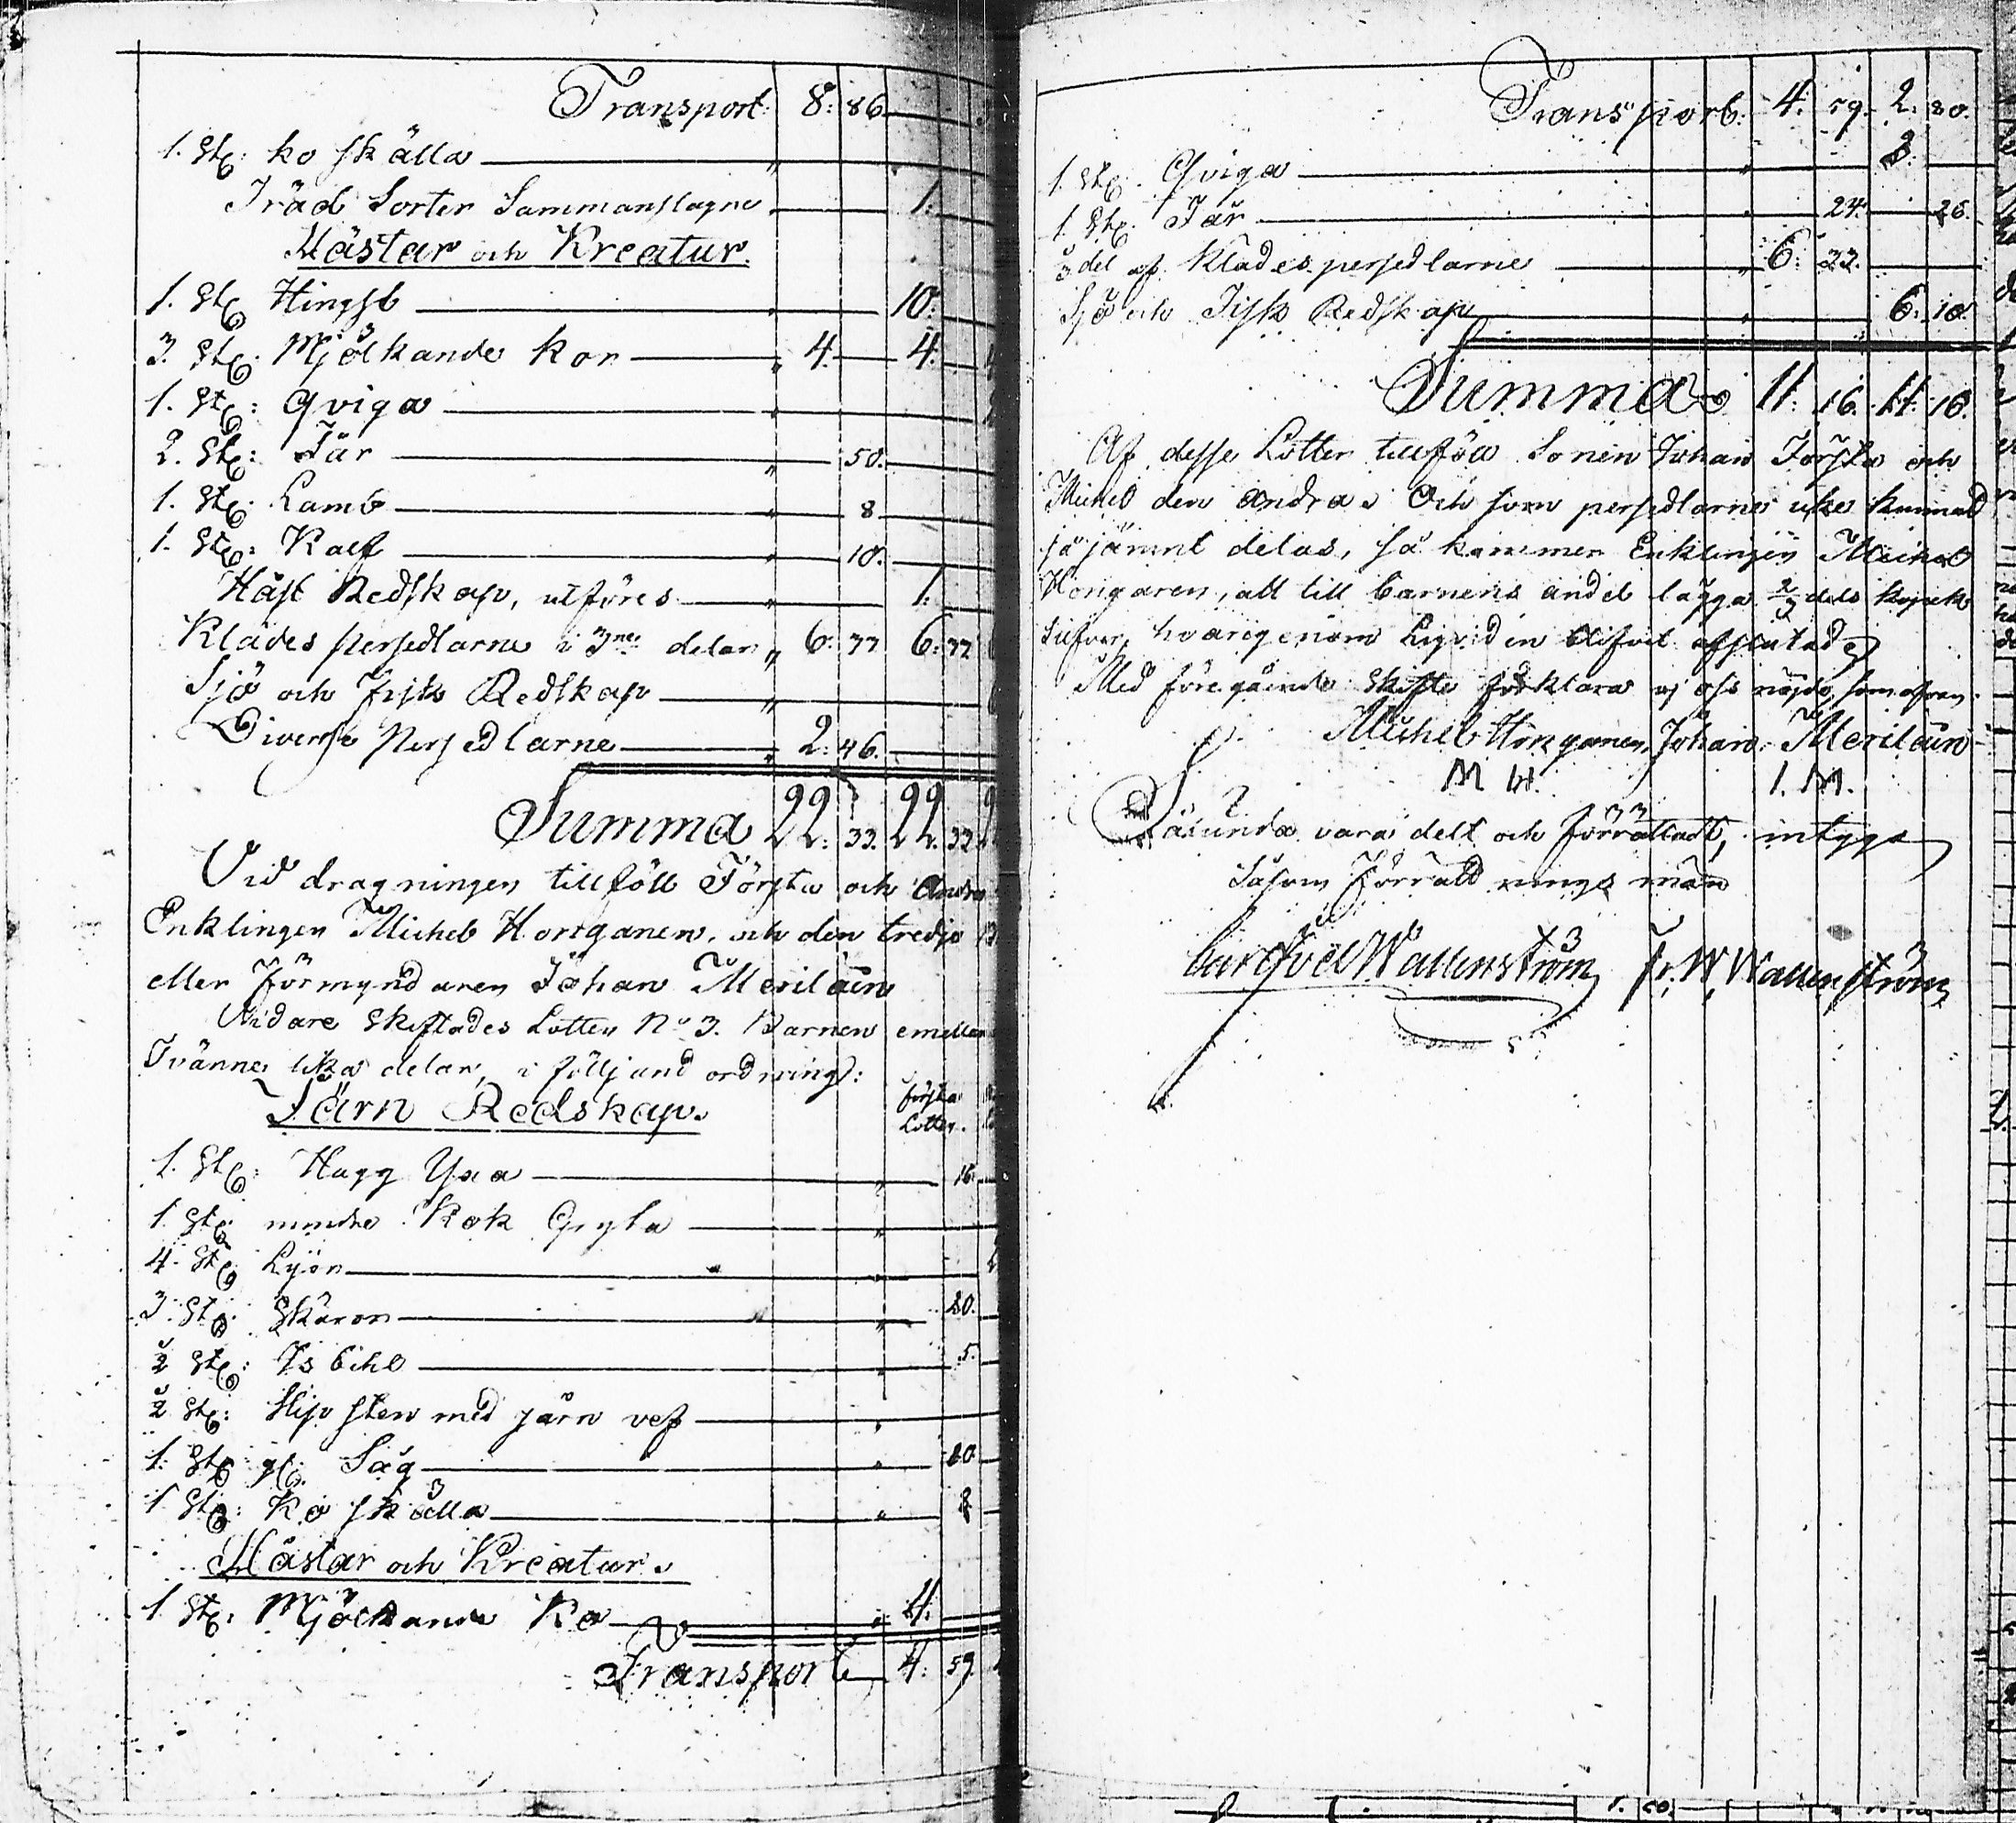 Transport: 8: 86.
1. St: ko skälla — „
Träd Sorter Sammanslagne — 1.
Hästar och Kreatur.
1. St: Hingst — 10.
3. St: Mjölkande kor — „ 4. — 4.
1. St: Qviga — „
2. St: Får — „ 50.
1. St: Lamb — „ 8
1. St: Kalf — „ 10.
Häst Redskap, utföres — „ 1.
Klädes persedlarne i 3ne delar „ 6: 33 6: 33
Sjö och fisk Redskap — „
Diverse Persedlarne — „ 2: 46.
Summa 22: 33. 22. 33
Vid dragningen tillföll Första och Andra
Enklingen Michel Honganen, och den tredje
eller Förmyndaren Johan Meriläin
Vidare skiftades Lotten No 3. Barnen emellan
Tvänne lika delar, i följand ordning:
Järn Redskap. första
Lotten.
1. St: Hugg Yxa — „ 16.
1. St: mindre Kok Gryta — „
4. St: Lyör — „
3. St: Skäror — „ 20.
½ St: Is bihl — „ 5.
½ St: Slip sten med järn vef — „
1. St: gl: Såg — „ 10.
1 St: Ko skälla — „ 8
Hästar och Kreatur.
1 St: Mjölkande Ko — „ 4.
Transport 4: 59.
Transport: 4. 59. 2. 80.
1. St: Qviga — „ 2.
1. St: Får — „ 24. 26.
½ del af Klädes persedlarne — „ 6: 33.
Sjö och Fisk Redskap — „ 6. 10.
Summa 11. 16. 11. 16.
Af desse Lotter tillföll Sonen Johan Första och
Michel den andra. Och som persedlarne icke kunnat
så jämnt delas, så kommer Enklingen Michel
Honganen, att till barnens andel lägga ⅔ dels kopek
silfver, hvarigenom Liqviden blifvit afslutad
Med föregående skifte förklara vi oss nöjde, som ofvan.
Michel Honganen, Johan Meriläin
M H. I. M.
Såsunda vara delt och förrättadt, intyga
Såsom Förrättningsmän
Carl Wallenström Fr. W. Wallenström